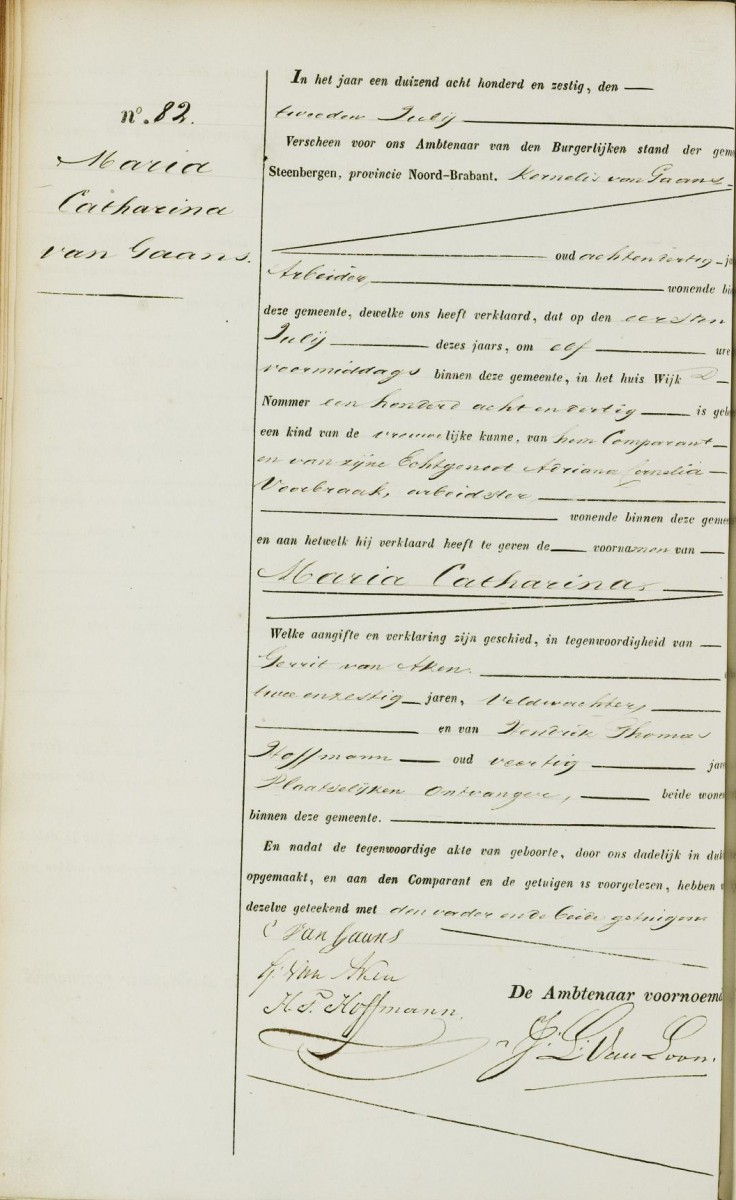 nº. 82.
Maria
Catharina
van Gaans.
In het jaar een duizend acht honderd en zestig, den
tweeden Julij
Verscheen voor ons Ambtenaar van den Burgerlijken stand der geme
Steenbergen, provincie Noord-Brabant. Kornelis van Gaans
oud achtendertig j
Arbeider, wonende bi
deze gemeente, dewelke ons heeft verklaard, dat op den eersten
Julij dezes jaars, om elf ure
voormiddags binnen deze gemeente, in het huis Wijk D
Nommer een honderd acht en dertig is geb
een kind van de vrouwelijke kunne, van hem Comparant
en van zijne Echtgenoot Adriana Cornelia
Voorbraak, arbeidster,
wonende binnen deze geme
en aan hetwelk hij verklaard heeft te geven de voornamen van
Maria Catharina
Welke aangifte en verklaring zijn geschied, in tegenwoordigheid van
Gerrit van Aken
twee enzestig jaren, Veldwachter,
en van Hendrik Thomas
Hoffmann oud veertig jar
Plaatselijken Ontvanger, beide wone
binnen deze gemeente.
En nadat de tegenwoordige akte van geboorte, door ons dadelijk in dub
opgemaakt, en aan den Comparant en de getuigen is voorgelezen, hebben
dezelve geteekend met den vader en de beide getuigen
C van Gaans
G. van Aken
H. T. Hoffmann.
De Ambtenaar voornoemd
J. L. van Loon.